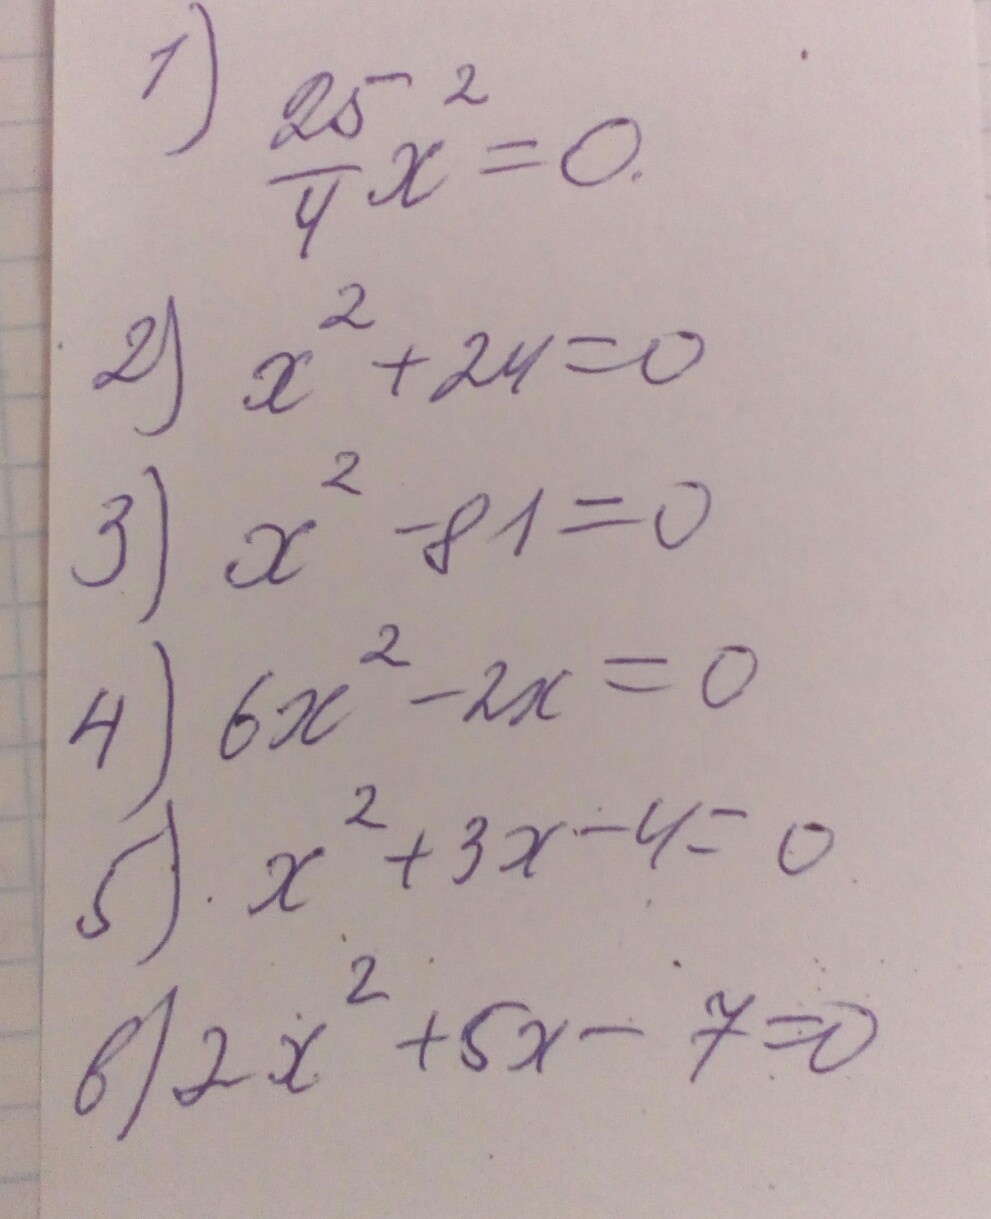 1) 25/4 x² = 0.
2) x² + 24 = 0
3) x² - 81 = 0
4) 6x² - 2x = 0
5) x² + 3x - 4 = 0
6) 2x² + 5x - 7 = 0